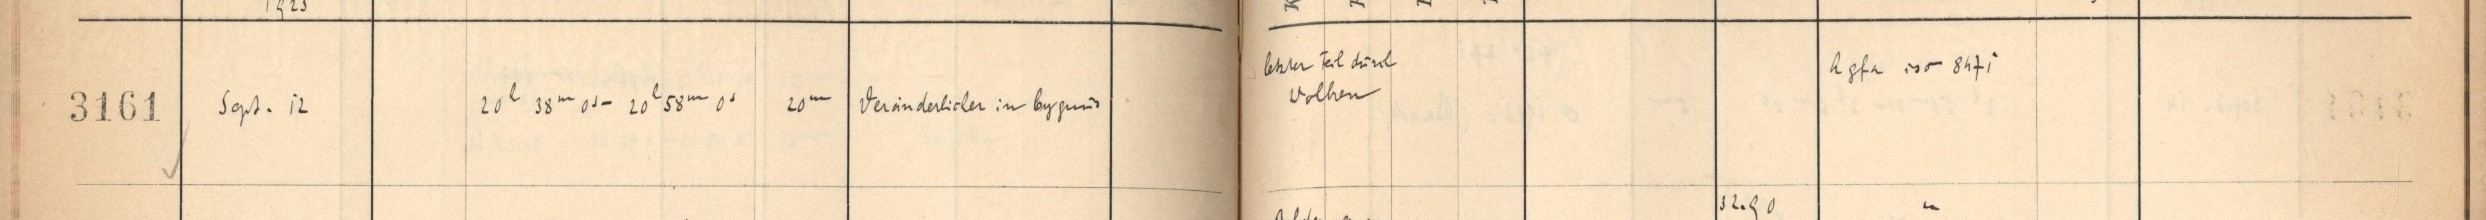 1923
3161 Sept. 12 20h 38m 0s - 20h 58m 0s 20m Veränderlicher in Cygnus
letzter Teil durch Agfa iso 8471
Wolken
32.90 "